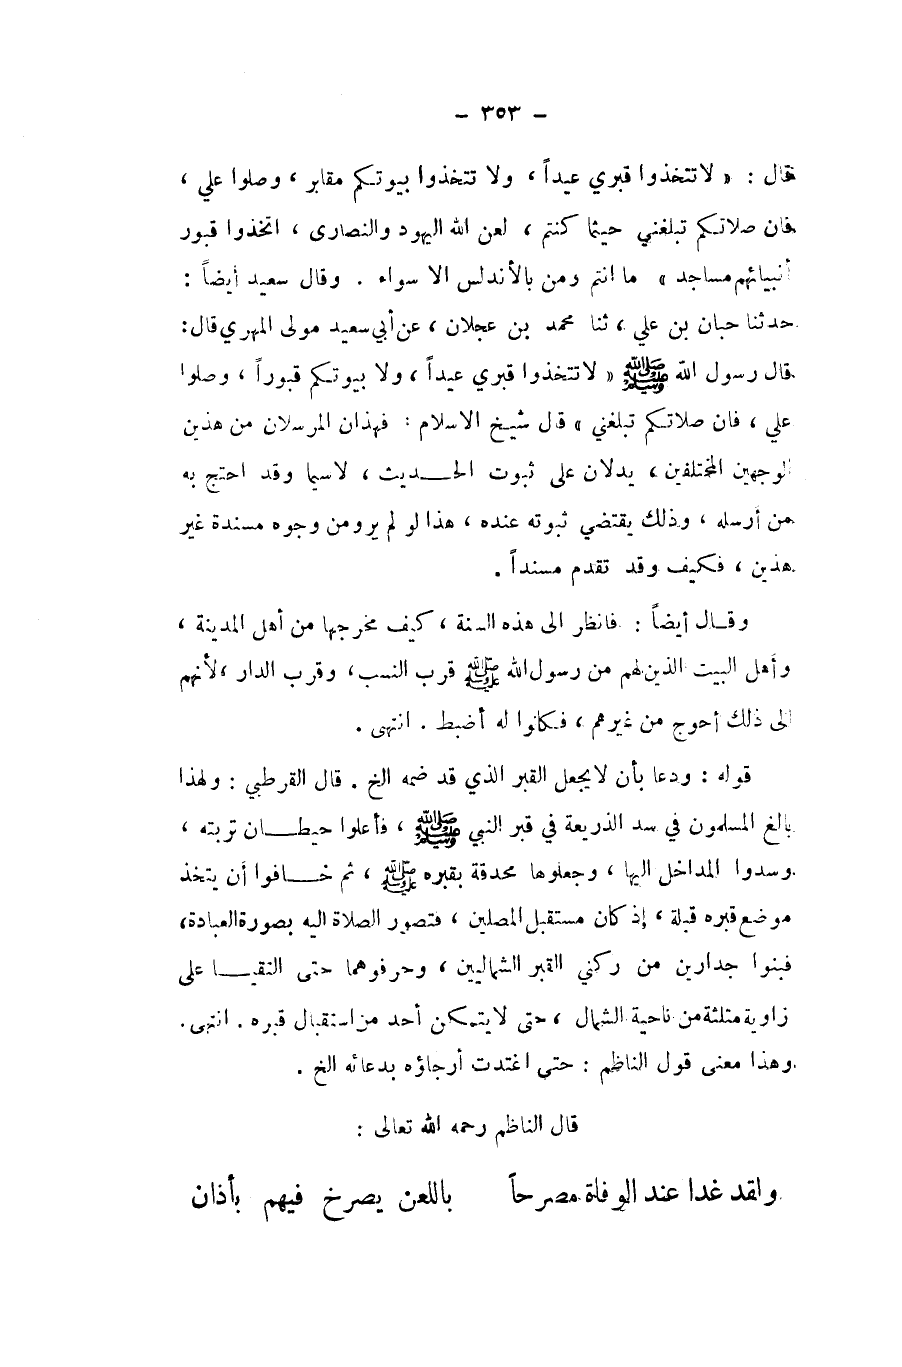 - ٣٥٣ -
قال : « لا تتخذوا قبري عيداً ، ولا تتخذوا بيوتكم مقابر ، وصلوا علي ،
فان صلاتكم تبلغني حيثما كنتم ، لعن الله اليهود والنصارى ، اتخذوا قبور
أنبيائهم مساجد » ما انتم ومن بالأندلس الا سواء . وقال سعيد أيضاً :
حدثنا حبان بن علي ، ثنا محمد بن عجلان ، عن أبي سعيد مولى المهري قال :
قال رسول الله ﷺ « لا تتخذوا قبري عيداً ، ولا بيوتكم قبوراً ، وصلوا
علي ، فان صلاتكم تبلغني » قال شيخ الاسلام : فهذان المرسلان من هذين
الوجهين المختلفين ، يدلان على ثبوت الحـــديث ، لاسيما وقد احتج به
من أرسله ، وذلك يقتضي ثبوته عنده ، هذا لو لم يرو من وجوه مسندة غير
هذين ، فكيف وقد تقدم مسنداً .
وقــال أيضاً : فانظر الى هذه السنة ، كيف مخرجها من أهل المدينة ،
وأهل البيت الذين لهم من رسول الله ﷺ قرب النسب ، وقرب الدار ، لأنهم
الى ذلك أحوج من غيرهم ، فكانوا له أضبط . انتهى .
قوله : ودعا بأن لا يجعل القبر الذي قد ضمه الخ . قال القرطبي : ولهذا
بالغ المسلمون في سد الذريعة في قبر النبي ﷺ ، فأعلوا حيطــــان تربته ،
وسدوا المداخل اليها ، وجعلوها محدقة بقبره ﷺ ، ثم خـــافوا أن يتخذ
موضع قبره قبلة ، إذ كان مستقبل المصلين ، فتصور الصلاة اليه بصورة العبادة ،
فبنوا جدارين من ركني القبر الشماليين ، وحرفوهما حتى التقيـــا على
زاوية مثلثة من ناحية الشمال ، حتى لا يتمكن أحد من استقبال قبره . انتهى .
وهذا معنى قول الناظم : حتى اغتدت أرجاؤه بدعائه الخ .
قال الناظم رحمه الله تعالى :
ولقد غدا عند الوفاة مصرحاً باللعن يصرخ فيهم بأذان